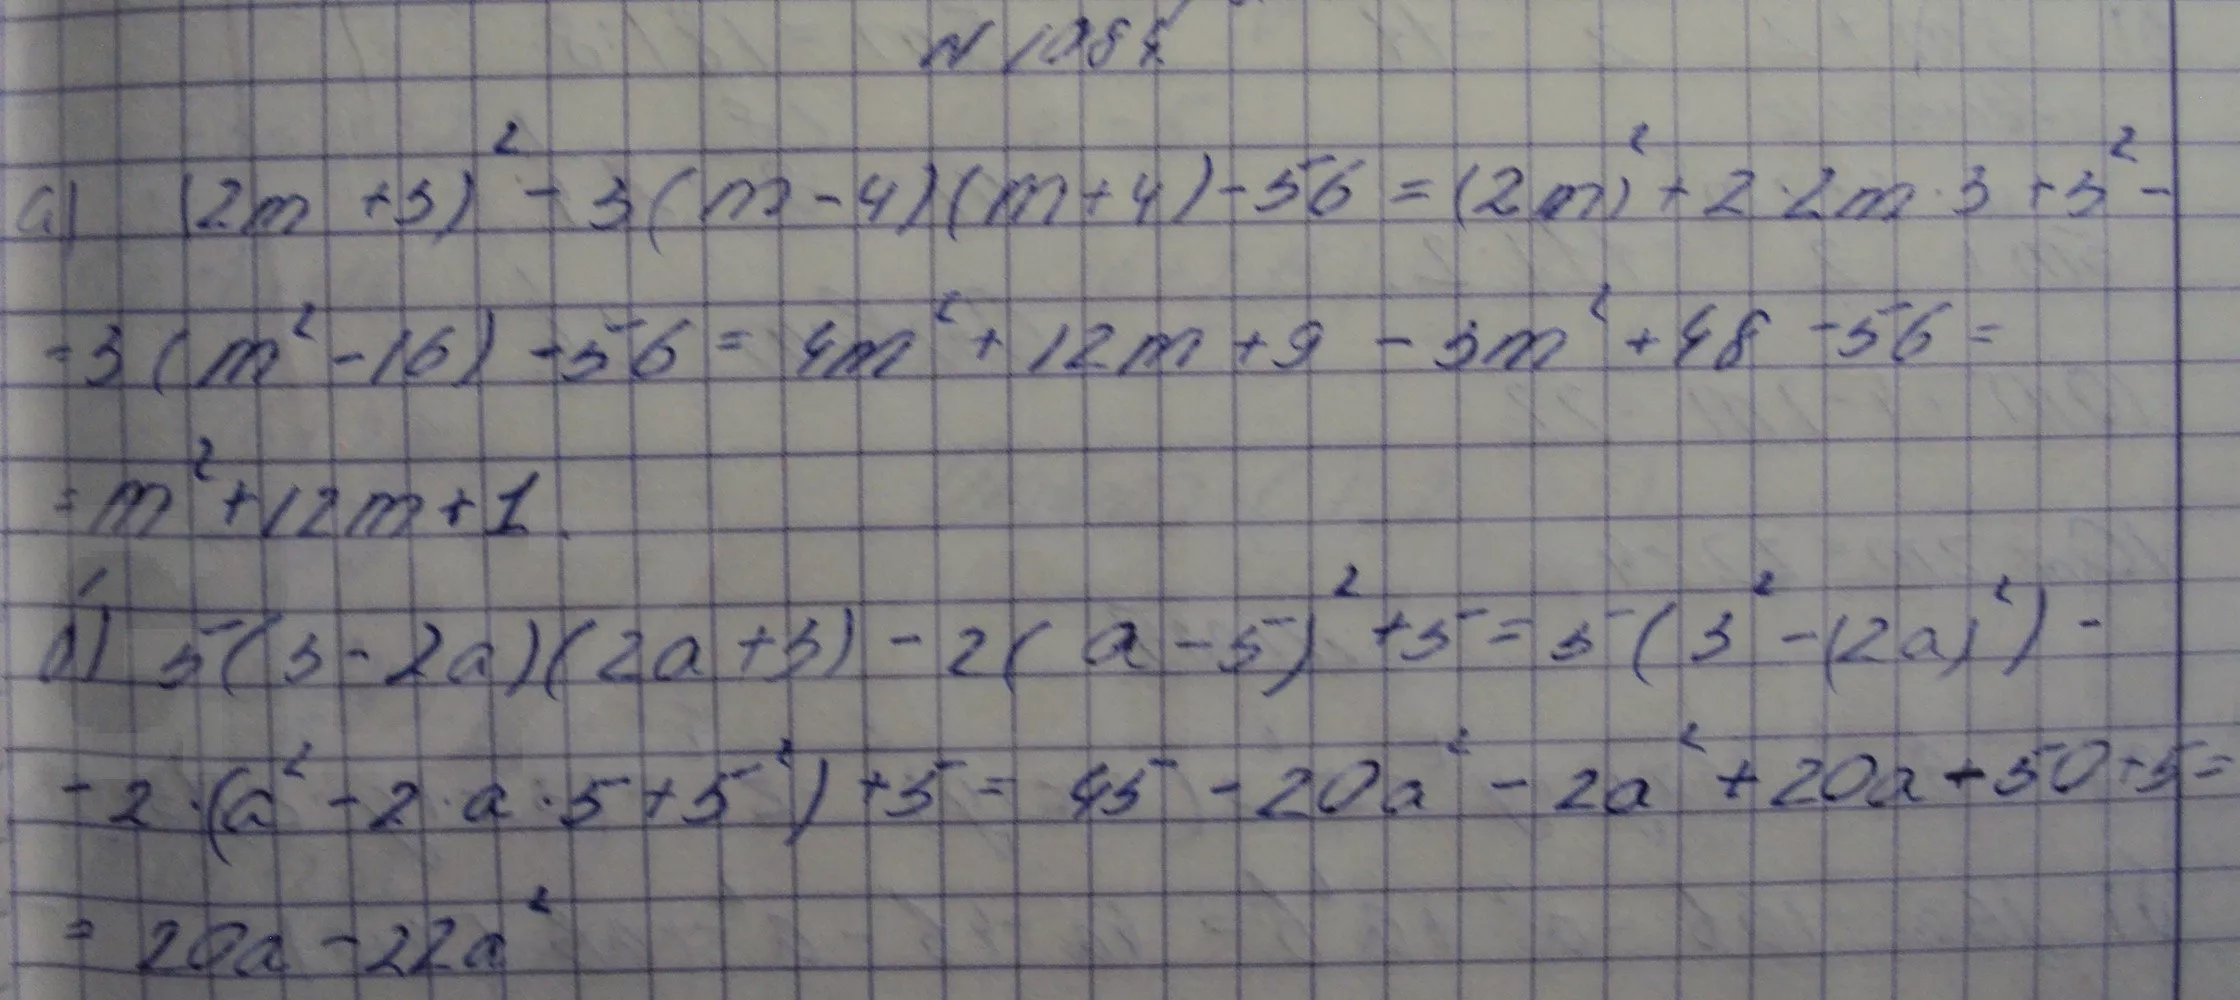 а) (2m + 3)² - 3(m - 4)(m + 4) - 56 = (2m)² + 2 · 2m · 3 + 3² -
- 3(m² - 16) - 56 = 4m² + 12m + 9 - 3m² + 48 - 56 =
= m² + 12m + 1
б) 5(3 - 2a)(2a + 3) - 2(a - 5)² + 5 = 5(3² - (2a)²) -
- 2 · (a² - 2 · a · 5 + 5²) + 5 = 45 - 20a² - 2a² + 20a - 50 + 5 =
= 20a - 22a²